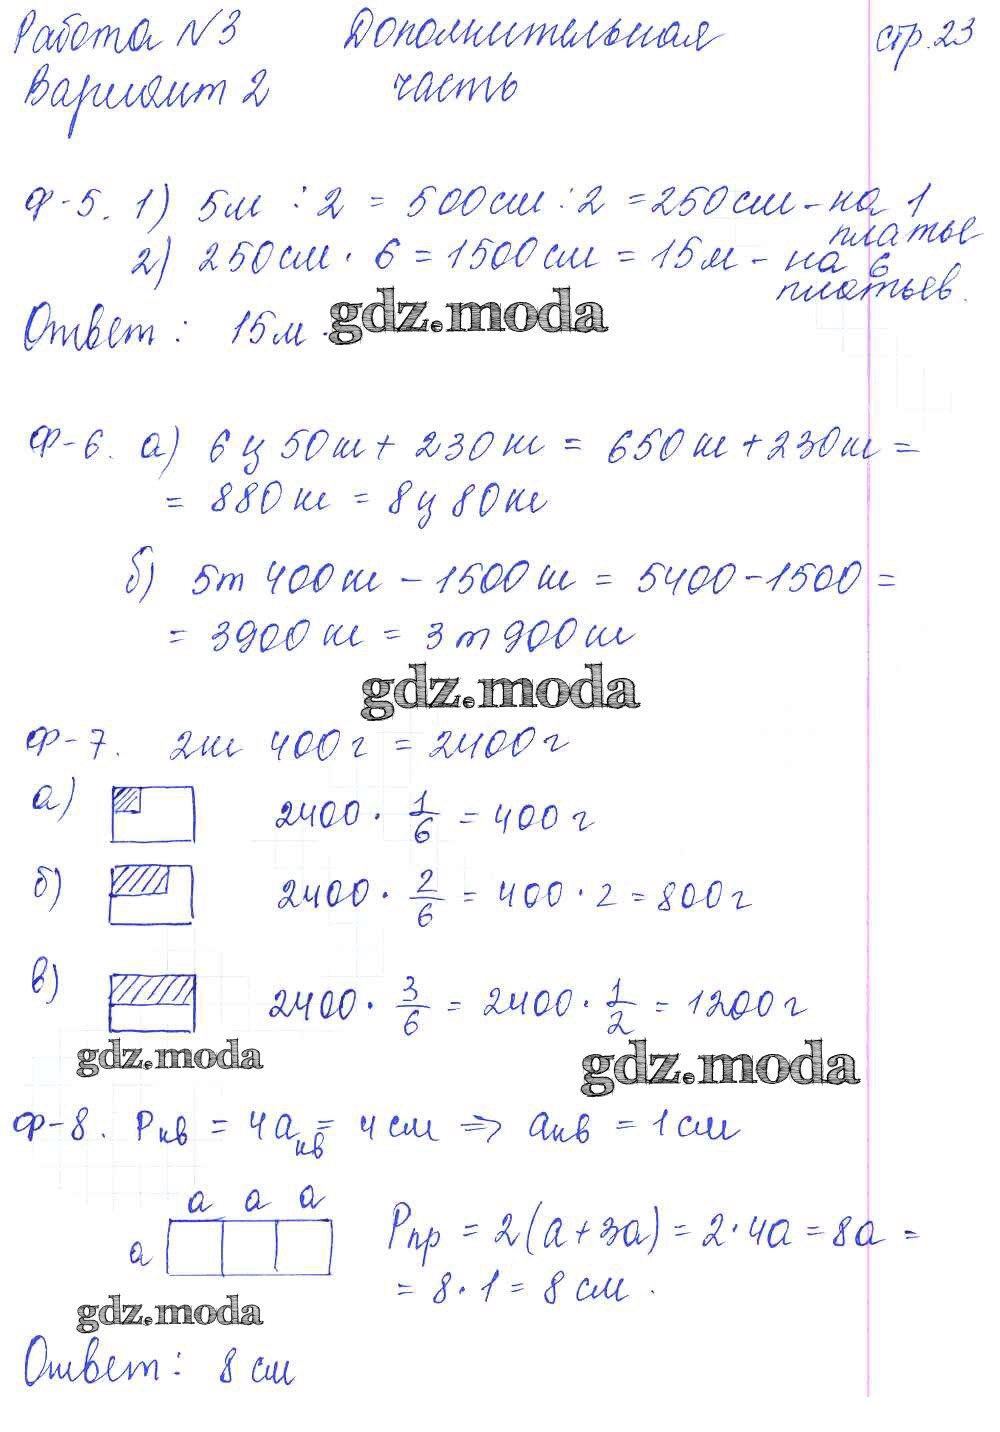 Работа №3 Дополнительная стр. 23
Вариант 2 часть
Ф-5. 1) 5м : 2 = 500см : 2 = 250см - на 1
платье
2) 250см · 6 = 1500см = 15м - на 6
платьев.
Ответ: 15м.
gdz.moda
Ф-6. а) 6ц 50кг + 230кг = 650кг + 230кг =
= 880кг = 8ц 80кг
б) 5т 400кг - 1500кг = 5400 - 1500 =
= 3900кг = 3т 900кг
gdz.moda
Ф-7. 2кг 400г = 2400г
а) 2400 · 1/6 = 400г
б) 2400 · 2/6 = 400 · 2 = 800г
в) 2400 · 3/6 = 2400 · 1/2 = 1200г
gdz.moda
gdz.moda
Ф-8. Pкв = 4aкв = 4см => aкв = 1см
a a a
a
Pпр = 2(a + 3a) = 2 · 4a = 8a =
= 8 · 1 = 8см.
gdz.moda
Ответ: 8см